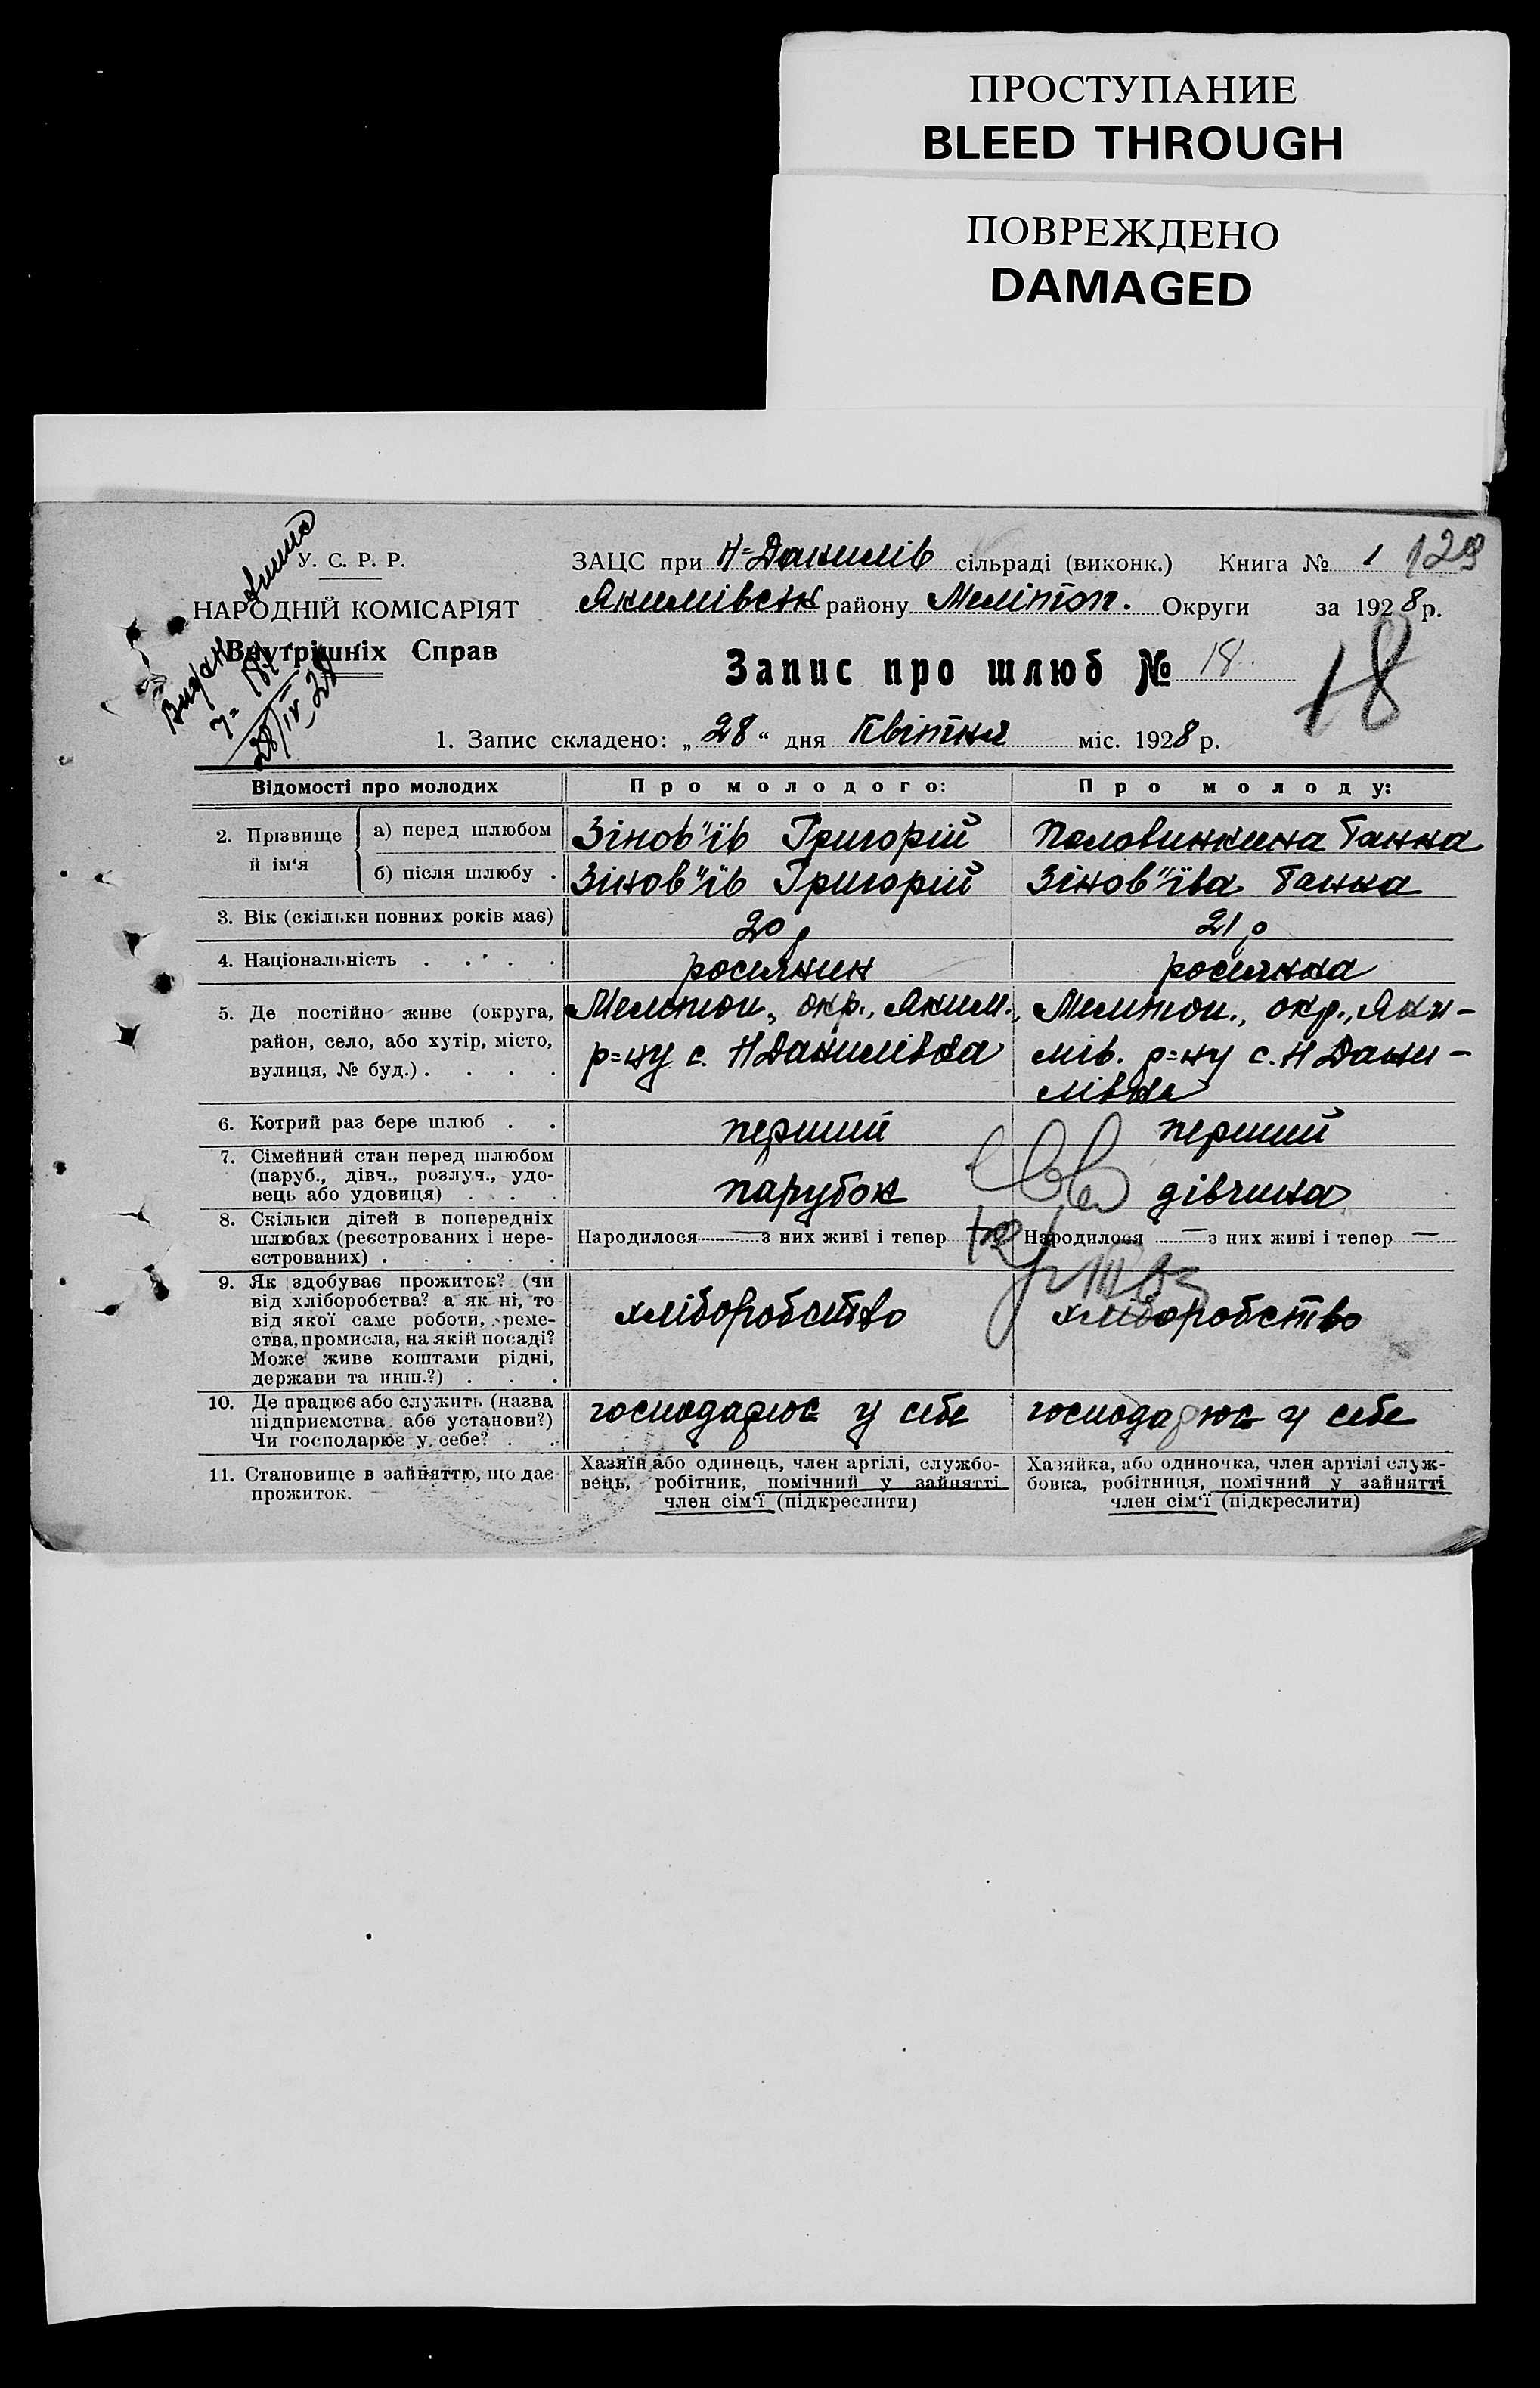 ПРОСТУПАНИЕ
BLEED THROUGH
ПОВРЕЖДЕНО
DAMAGED
У. С. Р. Р.
НАРОДНІЙ КОМІСАРІЯТ
Внутрішніх Справ
28/IV-28
ЗАЦС при Н-Данилів сільраді (виконк.) Книга № 1 129
Якимівськ району Меліտоп. Округи за 1928 р.
Запис про шлюб № 18.
18
1. Запис складено: „28“ дня Квітня міс. 1928 р.
Відомості про молодих Про молодого: Про молоду:
2. Прізвище й ім‘я
а) перед шлюбом Зінов"їв Григорій Половинкина Ганна
б) після шлюбу . Зінов"їв Григорій Зінов"їва Ганна
3. Вік (скільки повних років має) 20 р 21 р
4. Національність . . . . росиянин росиянка
5. Де постійно живе (округа, район, село, або хутір, місто, вулиця, № буд.) . . . .
Мелітоп., окр., Яким., Мелітоп., окр., Яки-
р=ну с. Н Данилівка мів. р=ну с. Н Дани-
лівка
6. Котрий раз бере шлюб . . перший перший
7. Сімейний стан перед шлюбом
(паруб., дівч., розлуч., удо-
вець або удовиця) . . . парубок дівчина
8. Скільки дітей в попередніх
шлюбах (реєстрованих і нере-
єстрованих) . . . . .
Народилося — з них живі і тепер Народилося — з них живі і тепер —
9. Як здобуває прожиток? (чи
від хліборобства? а як ні, то
від якої саме роботи, реме-
ства, промисла, на якій посаді?
Може живе коштами рідні,
держави та инш.?) . . .
хліборобство хліборобство
10. Де працює або служить (назва
підприємства або установи?)
Чи господарює у себе? . .
господарює у себе господарює у себе
11. Становище в зайняттю, що дає
прожиток.
Хазяїн або одинець, член артілі, службо-
вець, робітник, помічний у зайнятті
член сім‘ї (підкреслити)
Хазяйка, або одиночка, член артілі служ-
бовка, робітниця, помічний у зайнятті
член сім‘ї (підкреслити)